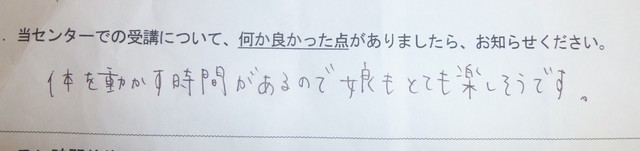 . 当センターでの受講について、何か良かった点がありましたら、お知らせください。
体を動かす時間があるので娘もとても楽しそうです。